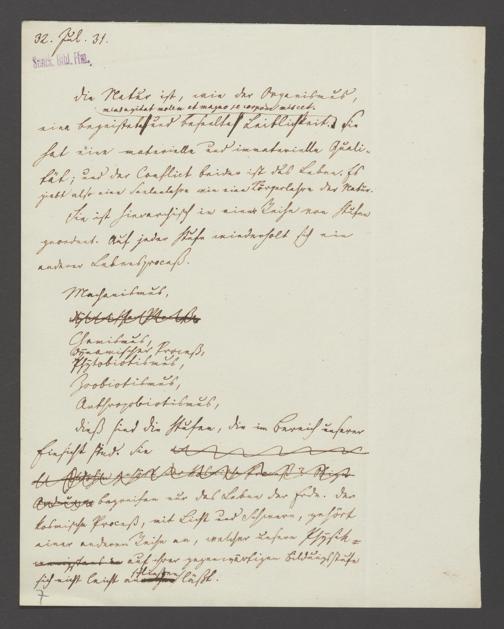 32. Jul. 31.
Die Natur ist, wie der Organismus,
mens agitat molem et magno se corpore miscet.
eine begeistete und beseelte Leiblichkeit. Sie
hat eine materielle und immaterielle Quali-
tät; und der Conflict beider ist das Leben. Es
giebt also eine Seelenlehre wie eine Körperlehre der Natur.
Sie ist hierarchisch in einer Reihe von Stufen
geordnet. Auf jeder Stufe wiederholt sich ein
anderer Lebensproceß.
Mechanismus,
Chemismus,
Dynamischer Proceß,
Phytobiotismus,
Zoobiotismus,
Anthropobiotismus,
dieß sind die Stufen, die im Bereich unserer
Einsicht sind. Sie
begreifen nur das Leben der Erde. Der
kosmische Proceß, mit Licht und Schwere, gehört
einer anderen Reihe an, welcher unsere Physik
auf ihrer gegenwärtigen Bildungsstufe
sich nicht leicht läßt.
7